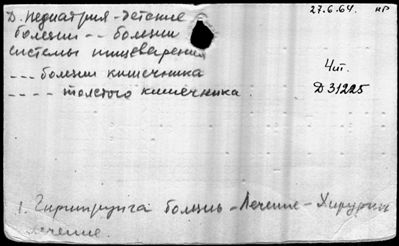 Д. Педиатрия - Детские
27.6.64. нр
болезни -- болезни
системы пищеварения
--- болезни кишечника
Чит.
---- толстого кишечника.
Д 31225
1. Гиршпрунга болезнь - Лечение - Хирургич
лечение.